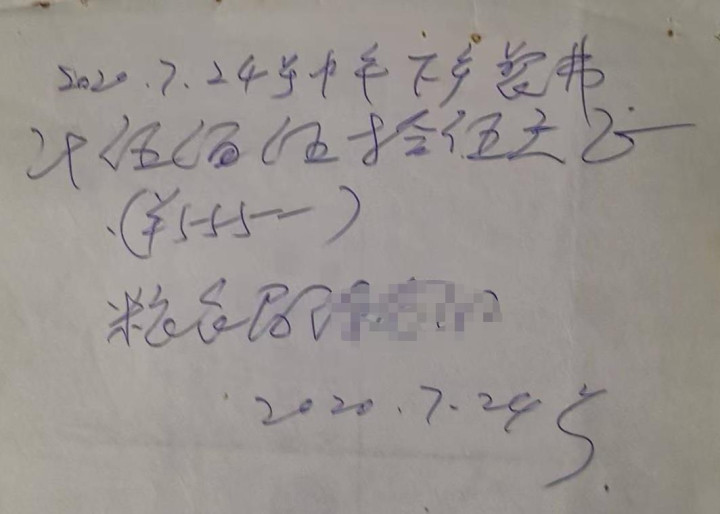 2020.7.24号中午下乡餐费
计伍佰伍拾伍元正
(¥555—)
粮食部
2020.7.24号